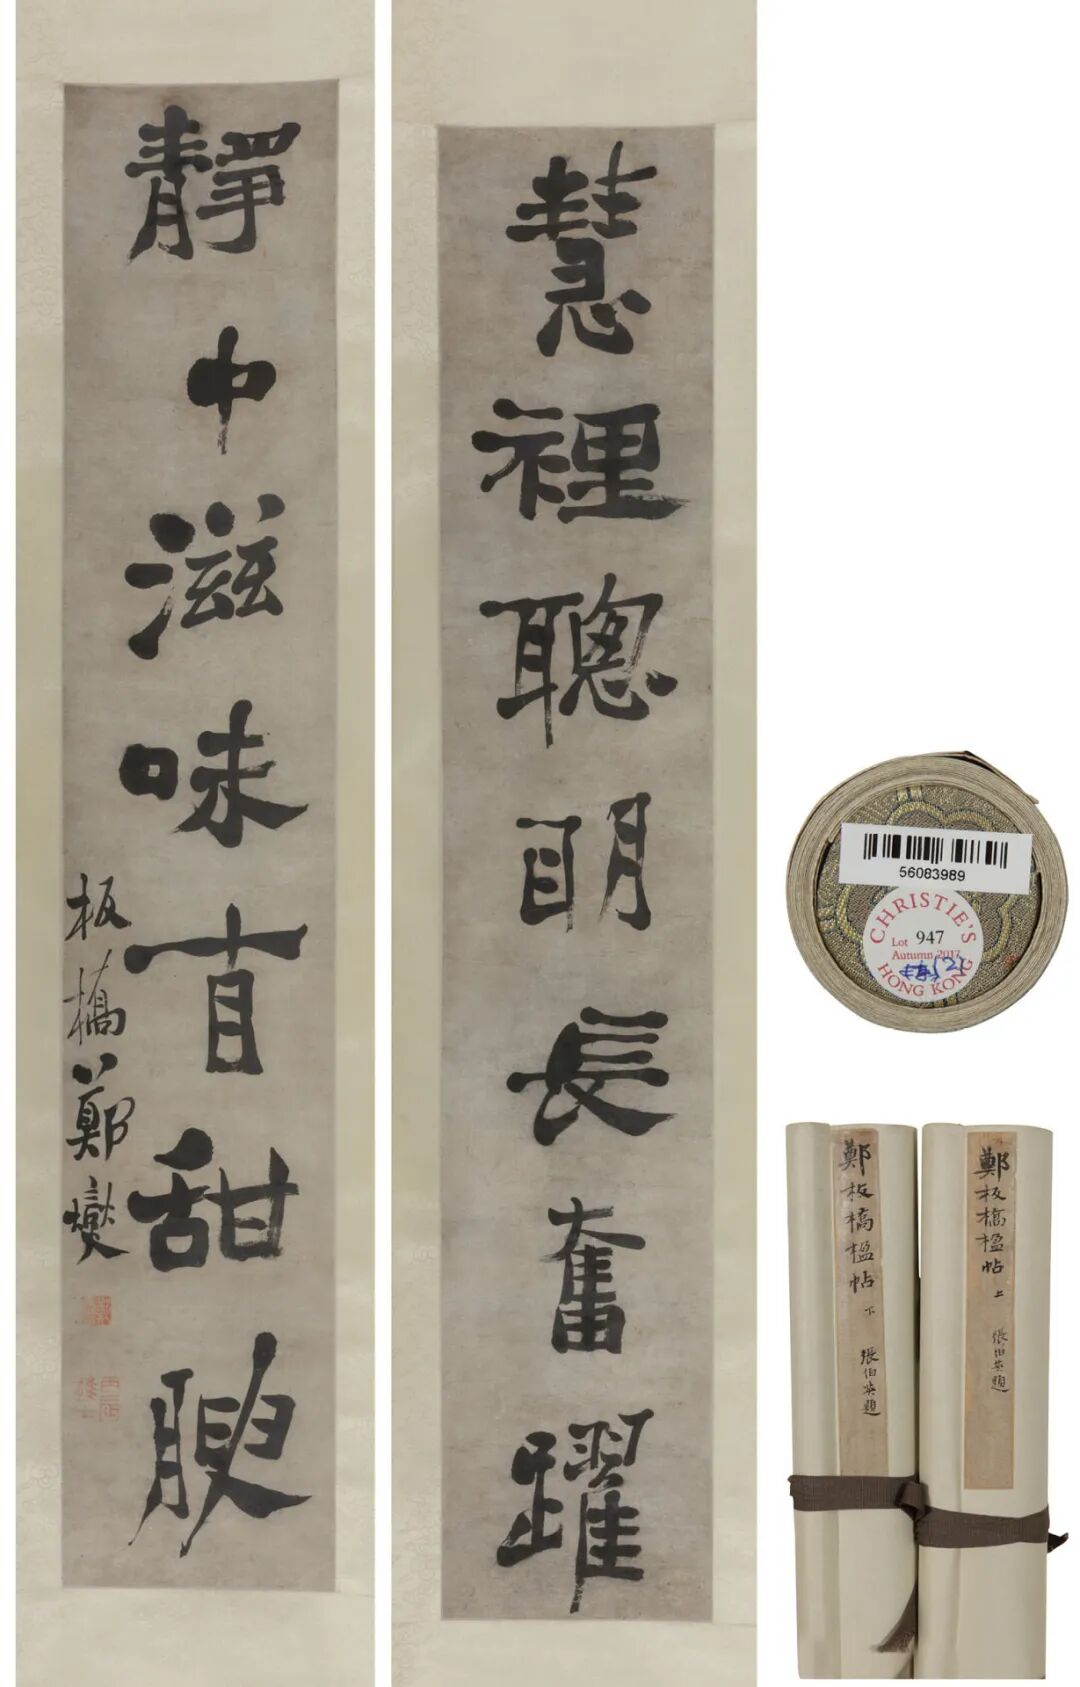 慧裡聰明長奮躍
靜中滋味自甜腴
板橋鄭燮
56083989
CHRISTIE'S
Lot 947
Autumn 2017
HONG KONG
鄭板橋楹帖 上 張伯英題
鄭板橋楹帖 下 張伯英題